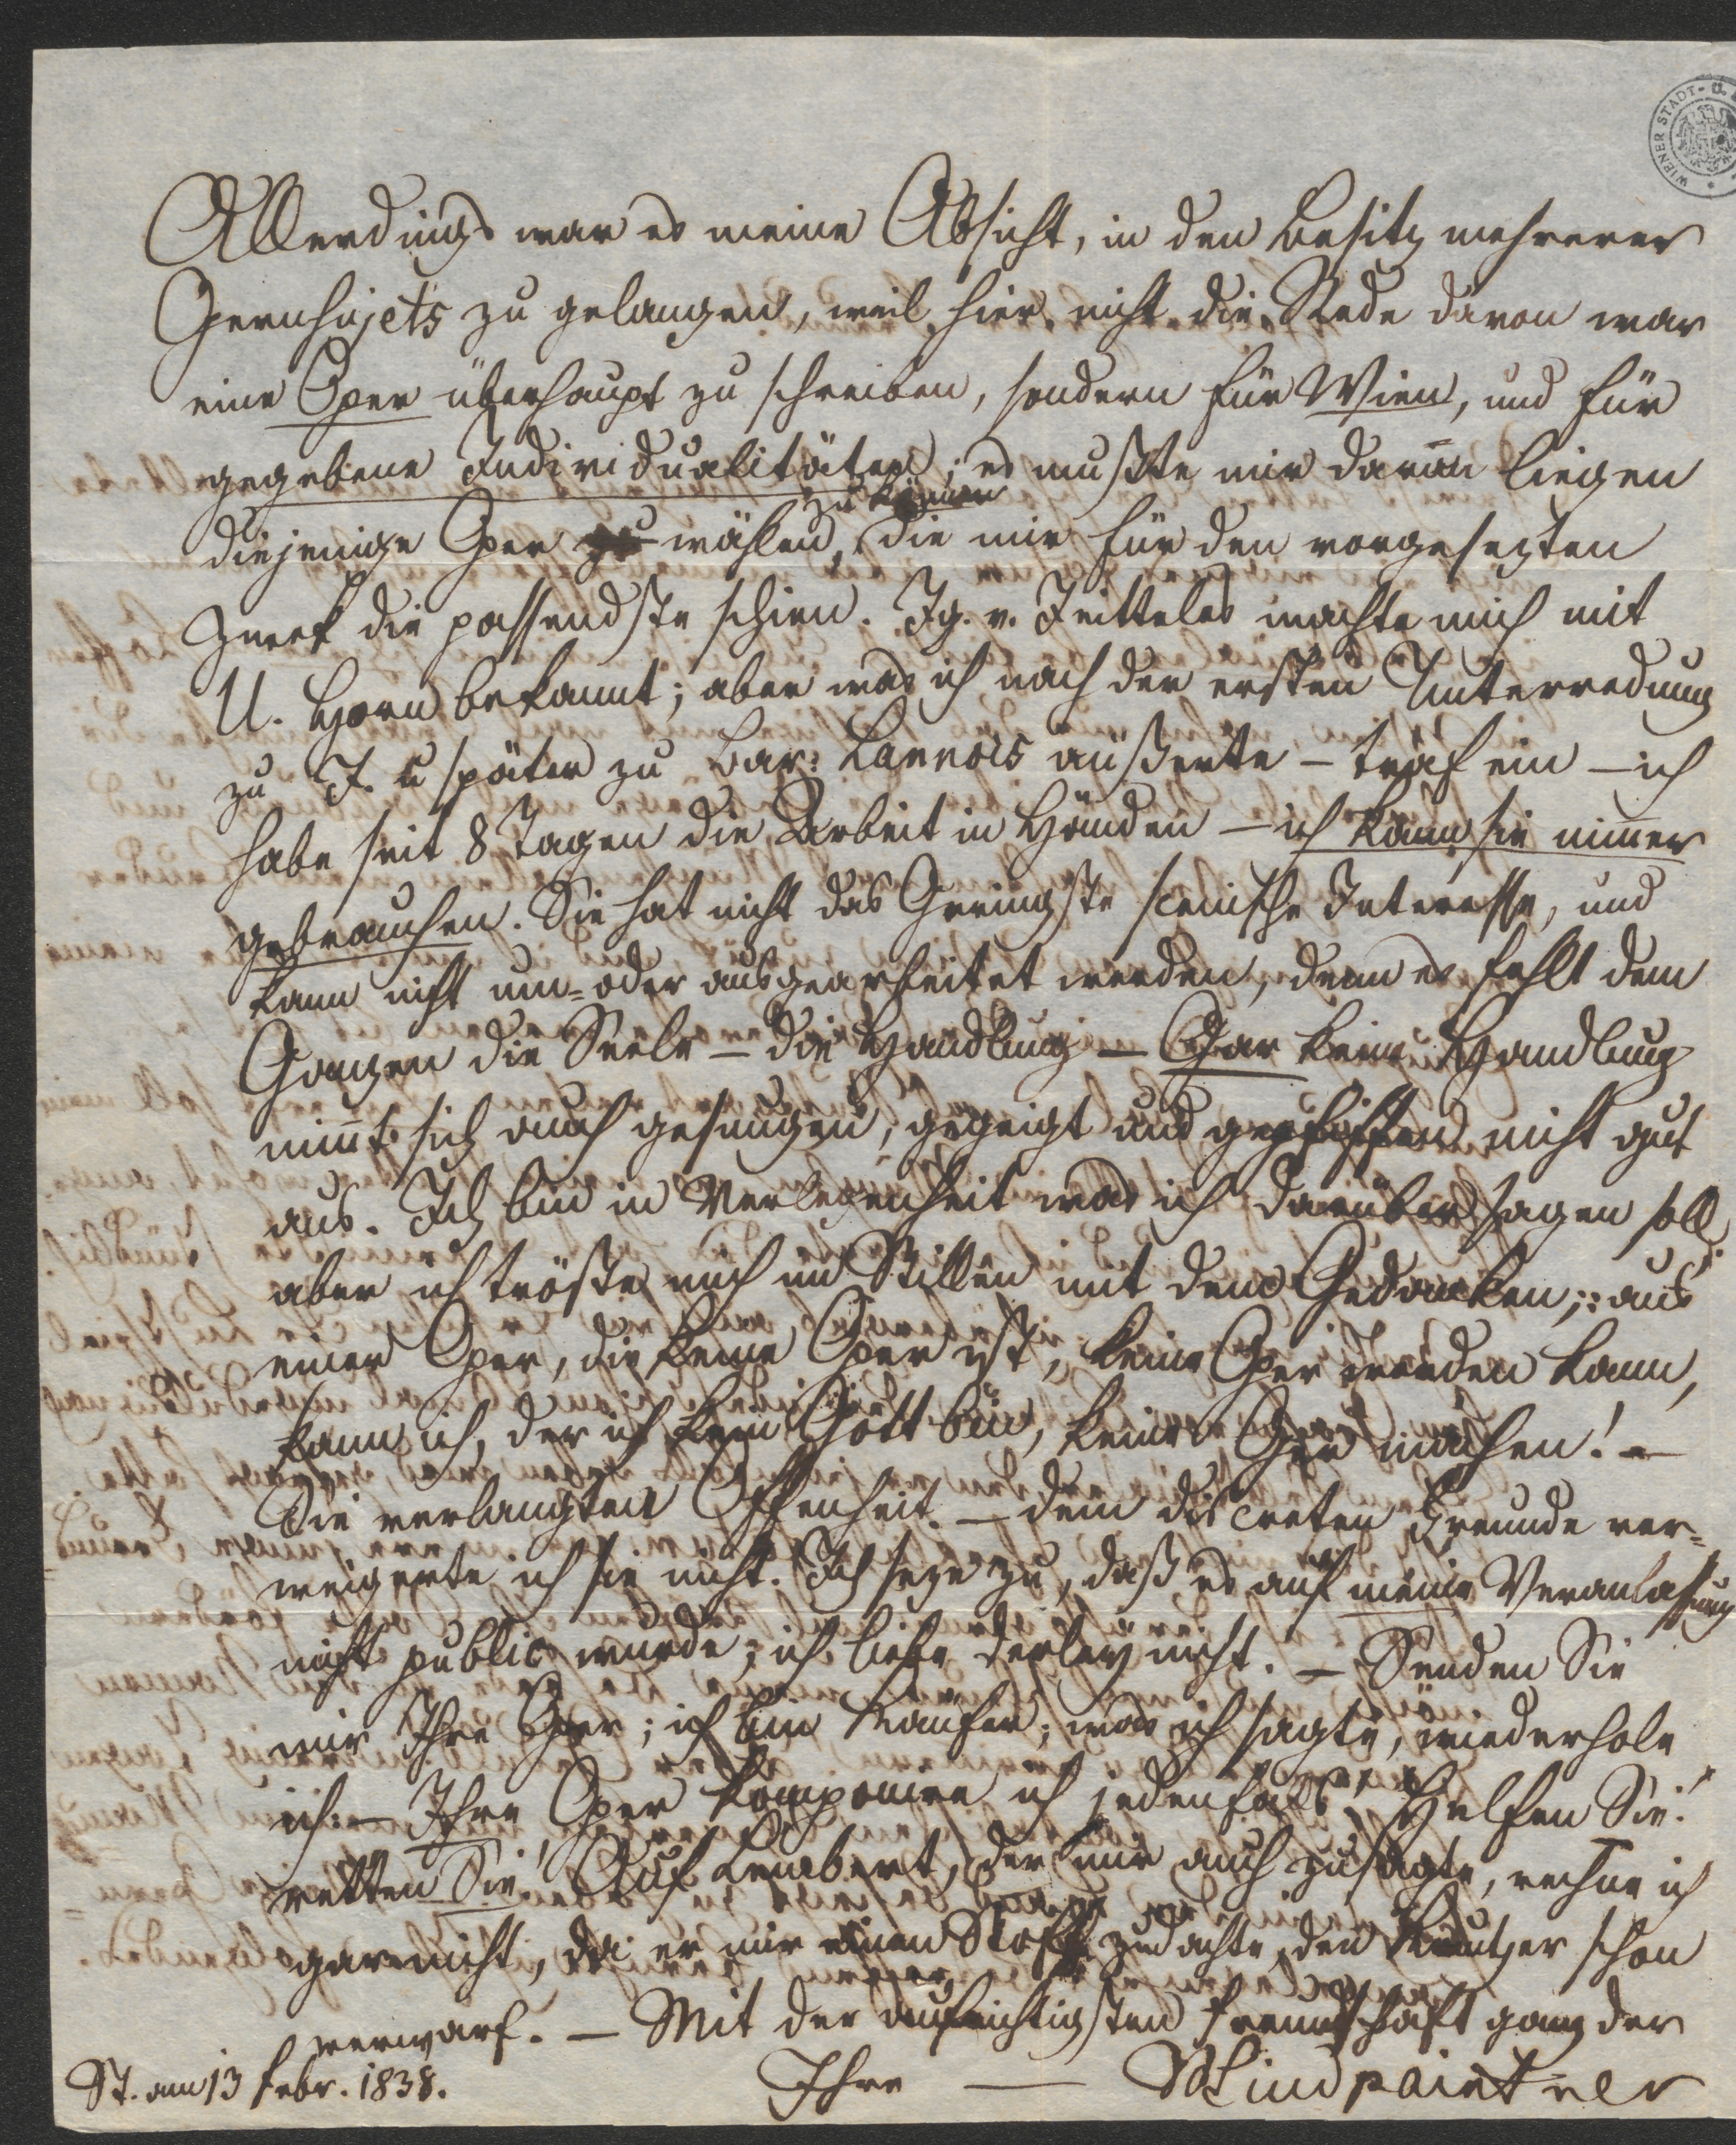 WIENER STADT- U.
Allerdings war es meine Absicht, in den Besitz mehrerer
Opernsujets zu gelangen, weil hier nicht die Rede davon war
eine Oper überhaupt zu schreiben, sondern für Wien, und für
gegebene Individualitäten; es mußte mir daran liegen
zu können
diejenige Oper zu wählen, die mir für den vorgesezten
Zweck die passendste schien. Ig. v. Jeitteles machte mich mit
U. Horn bekannt; aber was ich nach der ersten Unterredung
zu J. u später zu Bar: Lannois äußerte – traf ein – ich
habe seit 8 Tagen die Arbeit in Händen – ich kann sie nimer
gebrauchen. Sie hat nicht das Geringste scenische Interesse, und
kann nicht um- oder ausgearbeitet werden, denn es fehlt dem
Ganzen die Seele – die Handlung – Gar keine Handlung
nimt sich auch gesungen, gegeigt und gepfiffen nicht gut
aus. Ich bin in Verlegenheit was ich darüber sagen soll,
aber ich tröste mich im Stillen mit dem Gedanken: aus
einer Oper, die keine Oper ist, keine Oper werden kann,
kann ich, der ich kein Gott bin, keine Oper machen! –
Sie verlangten Offenheit. – dem discreten Freunde ver-
weigerte ich sie nicht. Ich seze zu, daß es auf meine Veranlaßung
nicht public wurde; ich liebe derley nicht. – Senden Sie
mir Ihre Oper; ich bin Käufer; was ich sagte, wiederhole
ich: – Ihre Oper komponire ich jedenfalls! Helfen Sie!
retten Sie! Auf Lembert, der mir auch zusagte, rechne ich
gar nicht, da er mir einen Stoff zudachte, den Kreutzer schon
verwarf. – Mit der aufrichtigsten Freundschaft ganz der
Ihre — Lindpaintner
St. am 13 Febr. 1838.